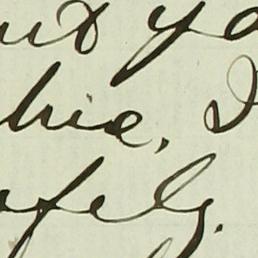 but yo
hie, I
afely.